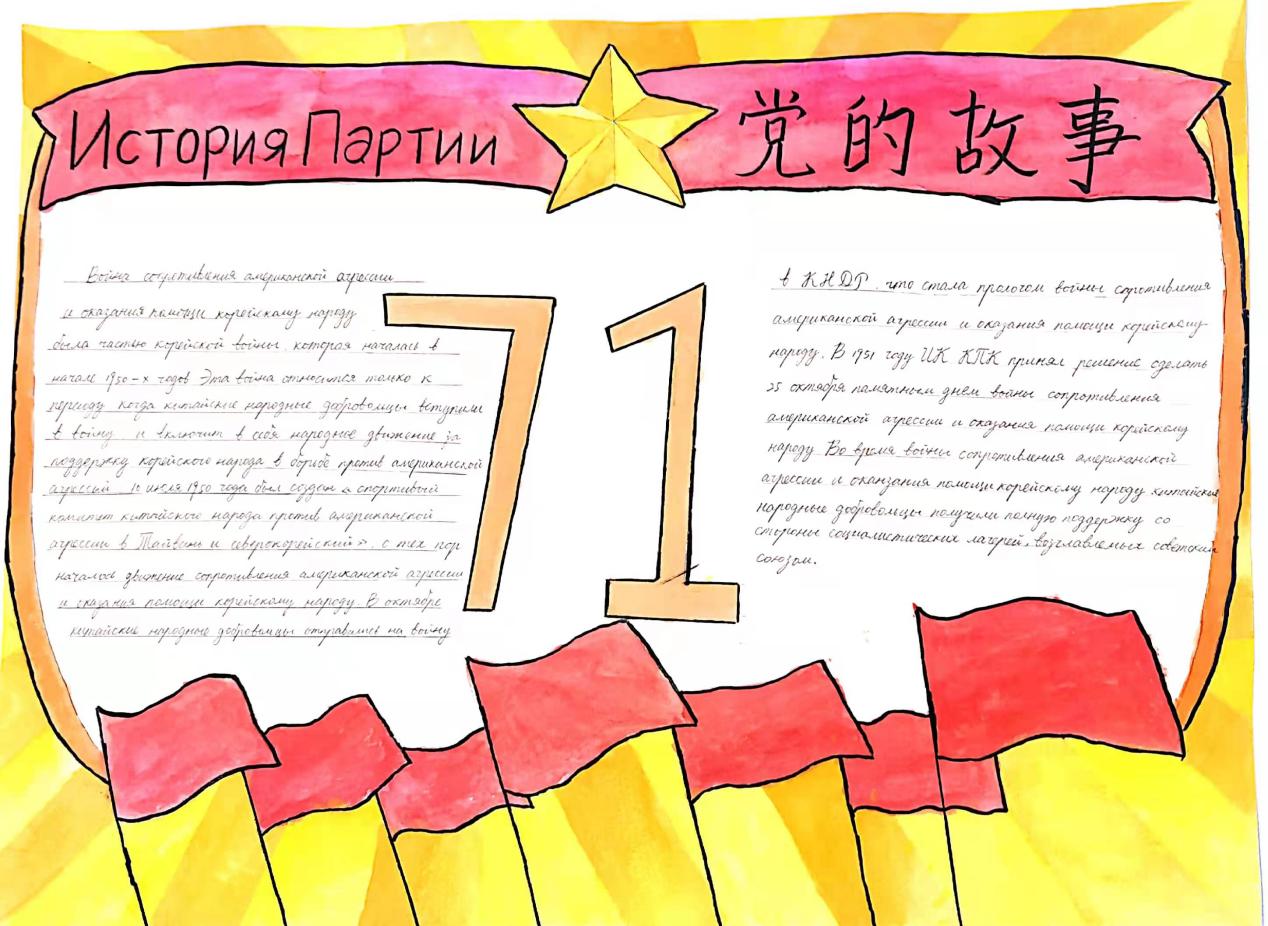 История Партии
党的故事
Война сопротивления американской агрессии
и оказания помощи корейскому народу
была частью корейской войны, которая началась в
начале 1950-х годов Эта война относится только к
периоду когда китайские народные добровольцы вступили
в войну, и включит в себя народное движение за
поддержку корейского народа в борьбе против американской
агрессии. 10 июля 1950 года был создан « спортивый
комитет китайского народа против американской
агрессии в Тайвань и северокорейский», с тех пор
началось движение сопротивления американской агрессии
и оказания помощи корейскому народу. В октябре
китайские народные добровольцы отправились на войну
71
в КНДР, что стала прологом войны сопротивления
американской агрессии и оказания помощи корейскому
народу. В 1951 году ЦК КПК принял решение сделать
25 октября памятным днём войны сопротивления
американской агрессии и оказания помощи корейскому
народу Во время войны сопротивления американской
агрессии и оканзания помощи корейскому народу китайские
народные добровольцы получили полную поддержку со
стороны социалистических лагерей, возглавлемых советский
союзом.